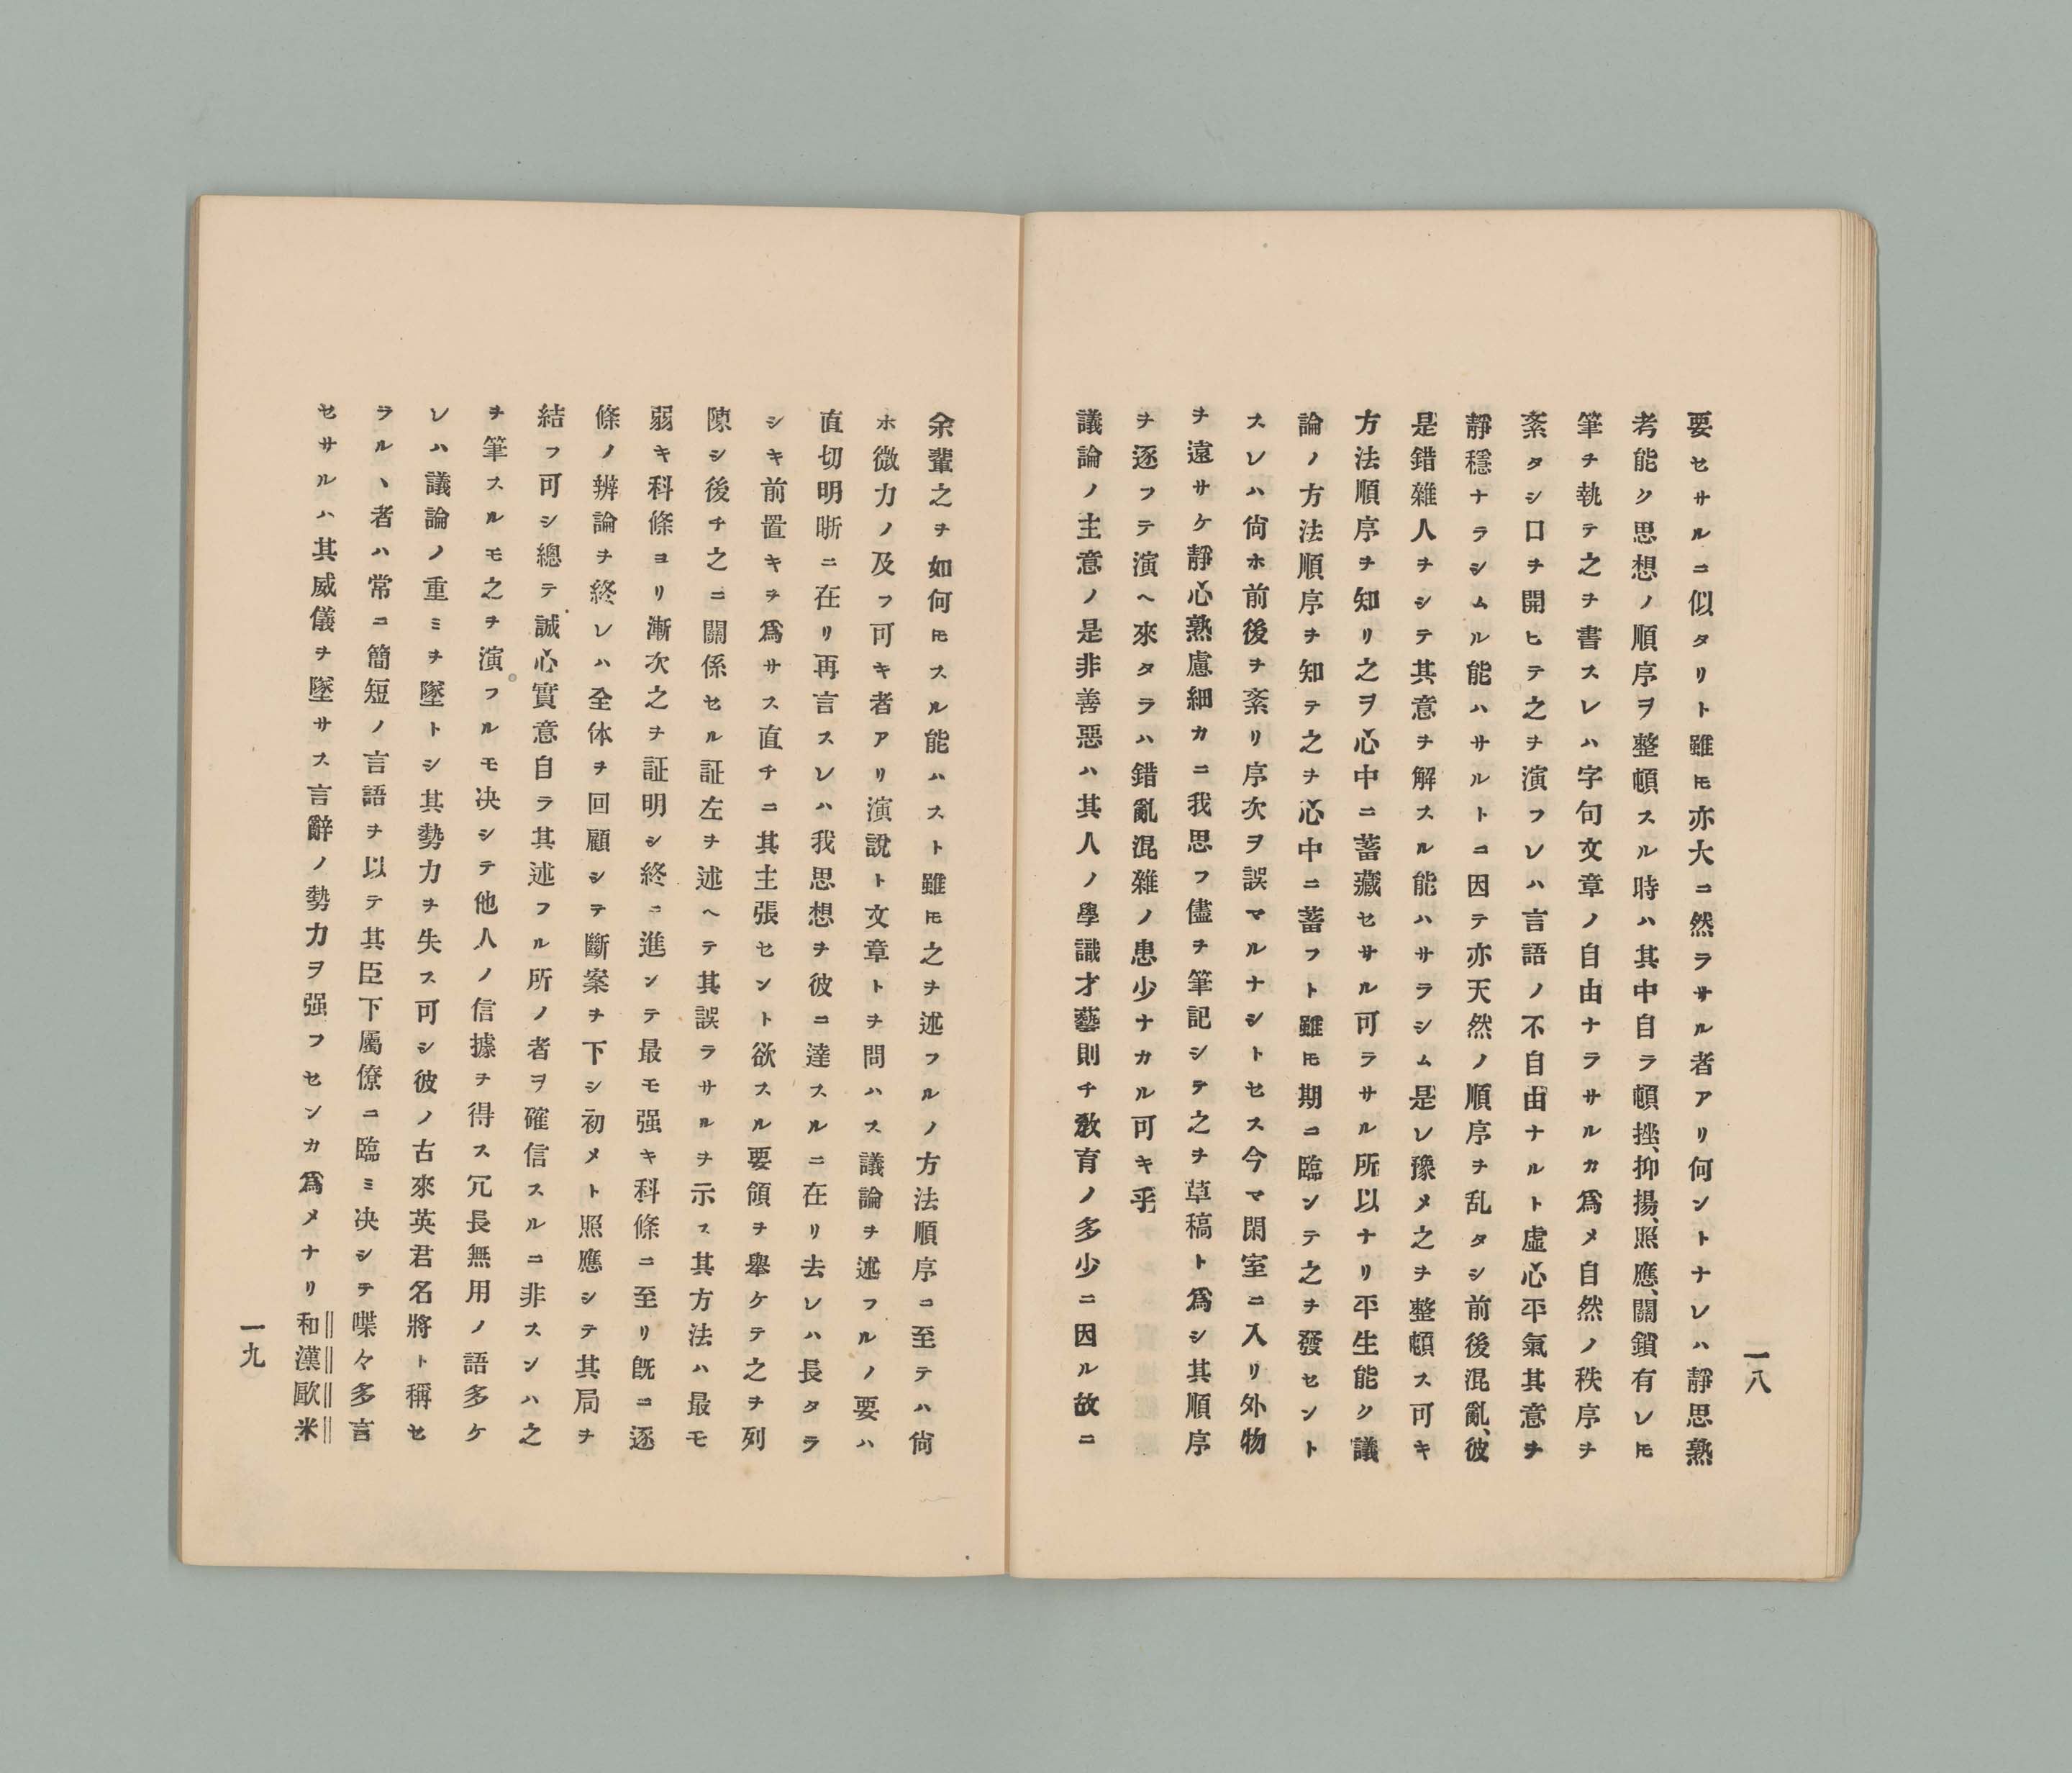 一八
要セサルニ似タリト雖𪜈亦大ニ然ラサル者アリ何ントナレハ靜思熟
考能ク思想ノ順序ヲ整頓スル時ハ其中自ラ頓挫、抑揚、照應、關鎖有レ𪜈
筆ヲ執テ之ヲ書スレハ字句文章ノ自由ナラサルカ爲メ自然ノ秩序ヲ
紊タシ口ヲ開ヒテ之ヲ演フレハ言語ノ不自由ナルト虛心平氣其意ヲ
靜穩ナラシムル能ハサルトニ因テ亦天然ノ順序ヲ乱タシ前後混亂、彼
是錯雜人ヲシテ其意ヲ解スル能ハサラシム是レ豫メ之ヲ整頓ス可キ
方法順序ヲ知リ之ヲ心中ニ蓄藏セサル可ラサル所以ナリ平生能ク議
論ノ方法順序ヲ知テ之ヲ心中ニ蓄フト雖𪜈期ニ臨ンテ之ヲ發セント
スレハ尙ホ前後ヲ紊リ序次ヲ誤マルナシトセス今マ閑室ニ入リ外物
ヲ遠サケ靜心熟慮細カニ我思フ儘ヲ筆記シテ之ヲ草稿ト爲シ其順序
ヲ逐フテ演ヘ來タラハ錯亂混雜ノ患少ナカル可キ乎
議論ノ主意ノ是非善惡ハ其人ノ學識才藝則チ敎育ノ多少ニ因ル故ニ
余輩之ヲ如何𪜈スル能ハスト雖𪜈之ヲ述フルノ方法順序ニ至テハ尙
ホ微力ノ及フ可キ者アリ演說ト文章トヲ問ハス議論ヲ述フルノ要ハ
直切明晣ニ在リ再言スレハ我思想ヲ彼ニ達スルニ在リ去レハ長タラ
シキ前置キヲ爲サス直チニ其主張セント欲スル要領ヲ擧ケテ之ヲ列
陳シ後チ之ニ關係セル証左ヲ述ヘテ其誤ラサルヲ示ス其方法ハ最モ
弱キ科條ヨリ漸次之ヲ証明シ終ニ進ンテ最モ强キ科條ニ至リ旣ニ逐
條ノ辨論ヲ終レハ全体ヲ回顧シテ斷案ヲ下シ初メト照應シテ其局ヲ
結フ可シ總テ誠心實意自ラ其述フル所ノ者ヲ確信スルニ非スンハ之
ヲ筆スルモ之ヲ演フルモ决シテ他人ノ信據ヲ得ス冗長無用ノ語多ケ
レハ議論ノ重ミヲ墜トシ其勢力ヲ失ス可シ彼ノ古來英君名將ト稱セ
ラルヽ者ハ常ニ簡短ノ言語ヲ以テ其臣下屬僚ニ臨ミ决シテ喋々多言
セサルハ其威儀ヲ墜サス言辭ノ勢力ヲ强フセンカ爲メナリ和漢歐米
一九